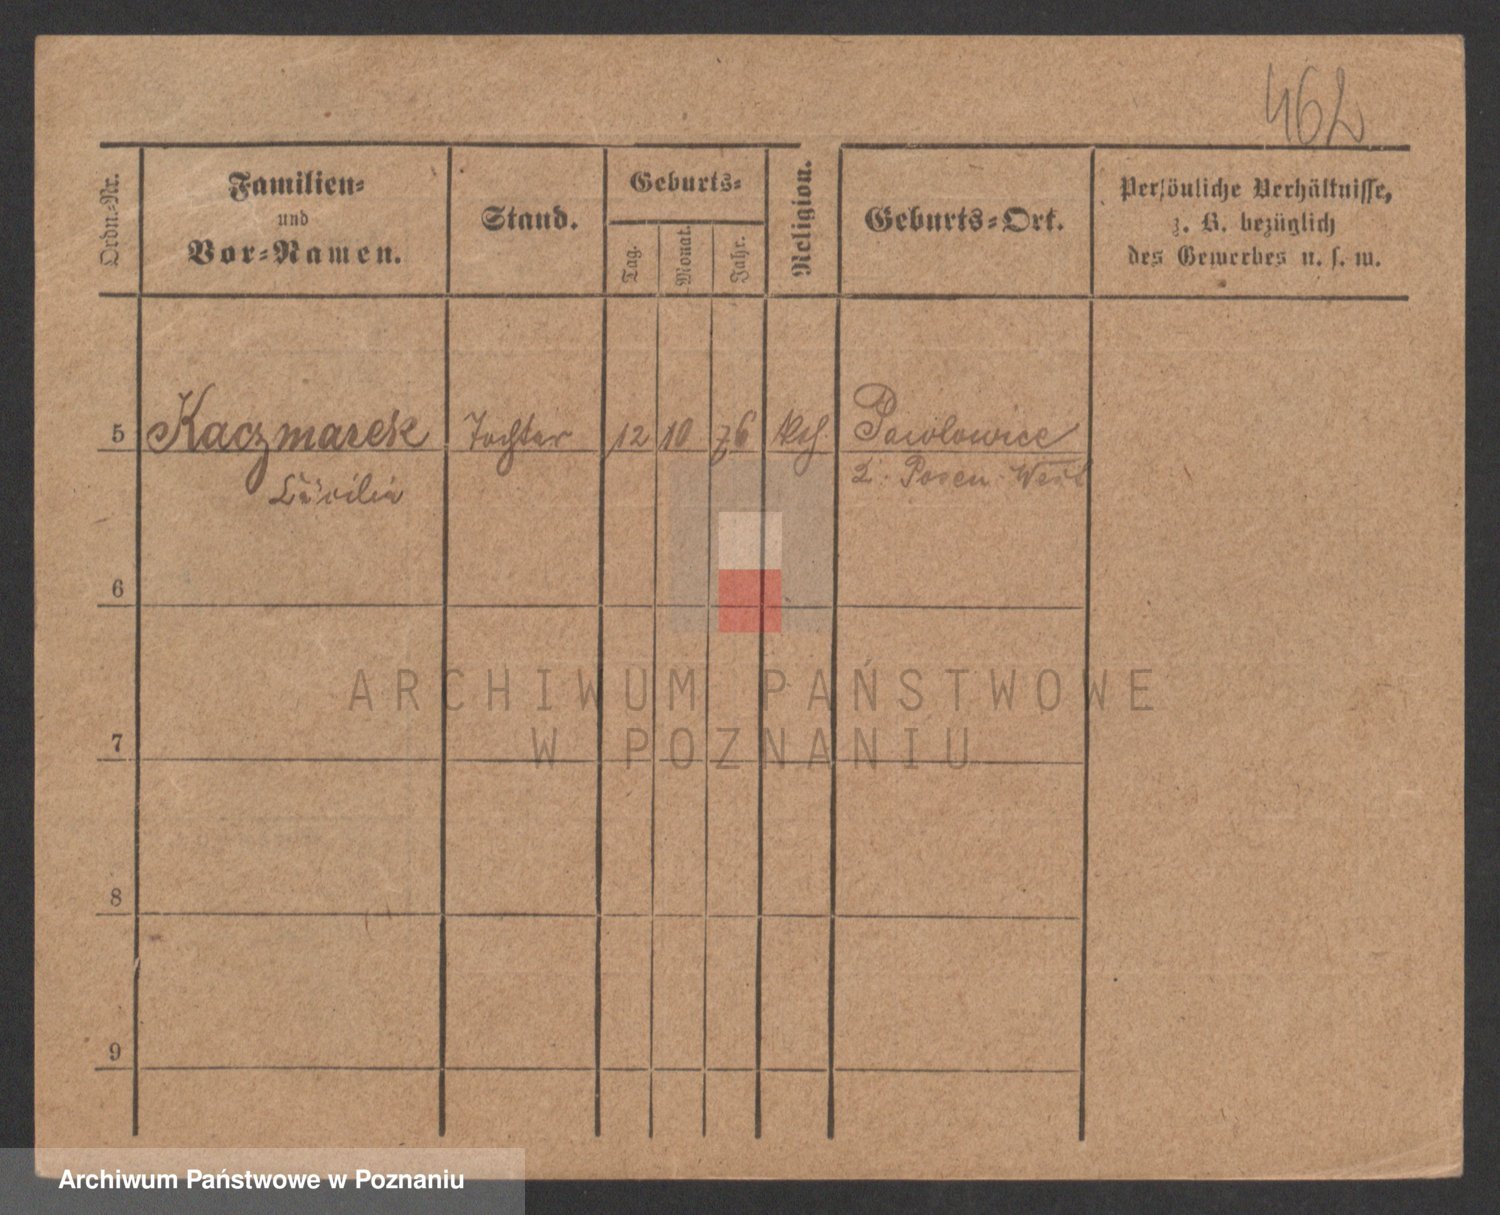 462
Ordn.-Nr.
Familien-
und
Vor-Namen.
Stand.
Geburts-
Tag.
Monat.
Jahr.
Religion.
Geburts-Ort.
Persönliche Verhältnisse,
z. B. bezüglich
des Gewerbes u. s. w.
5 Kaczmarek Tochter 12 10 76 kth Pawlowice
Cäcilia Posen West
6
ARCHIWUM PAŃSTWOWE
W POZNANIU
7
8
9
Archiwum Państwowe w Poznaniu